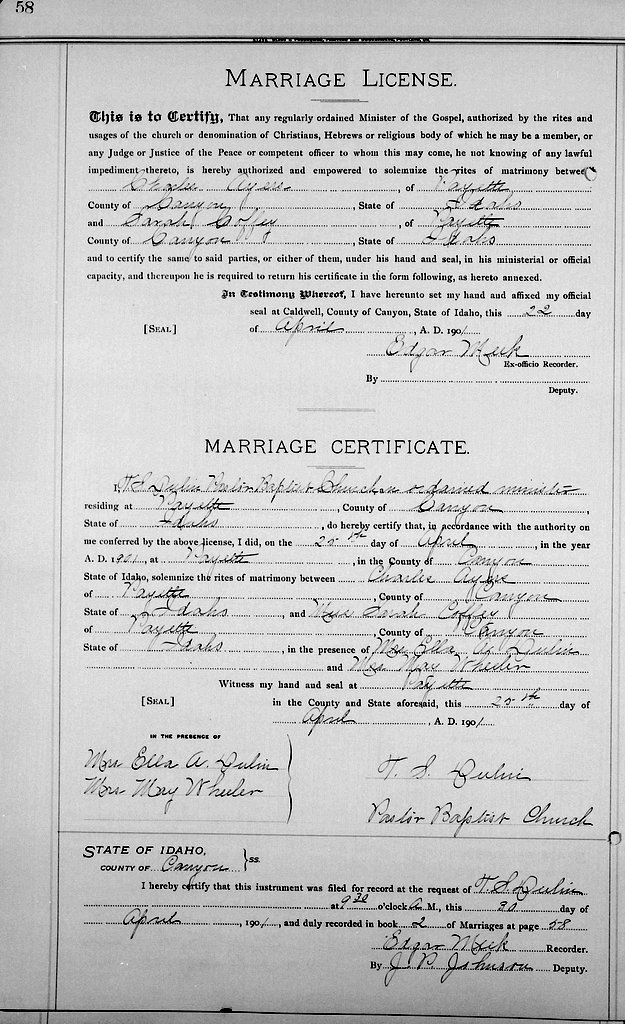 58
MARRIAGE LICENSE.
This is to Certify, That any regularly ordained Minister of the Gospel, authorized by the rites and
usages of the church or denomination of Christians, Hebrews or religious body of which he may be a member, or
any Judge or Justice of the Peace or competent officer to whom this may come, he not knowing of any lawful
impediment thereto, is hereby authorized and empowered to solemnize the rites of matrimony between
Charles Ayers, of Payette
County of Canyon, State of Idaho
and Sarah Coffey, of Payette
County of Canyon, State of Idaho
and to certify the same to said parties, or either of them, under his hand and seal, in his ministerial or official
capacity, and thereupon he is required to return his certificate in the form following, as hereto annexed.
In Testimony Whereof, I have hereunto set my hand and affixed my official
seal at Caldwell, County of Canyon, State of Idaho, this 22 day
[SEAL] of April, A. D. 1901
Edgar Meek
Ex-officio Recorder.
By
Deputy.
MARRIAGE CERTIFICATE.
I, T. S. Dulin Pastor Baptist Church an ordained minister
residing at Payette, County of Canyon,
State of Idaho, do hereby certify that, in accordance with the authority on
me conferred by the above license, I did, on the 25th day of April, in the year
A. D. 1901, at Payette, in the County of Canyon
State of Idaho, solemnize the rites of matrimony between Charles Ayers
of Payette, County of Canyon
State of Idaho, and Miss Sarah Coffey
of Payette, County of Canyon
State of Idaho, in the presence of Mrs Ella A. Dulin
and Mrs May Wheeler
Witness my hand and seal at Payette
[SEAL] in the County and State aforesaid, this 25th day of
April, A. D. 1901
IN THE PRESENCE OF
Mrs Ella A. Dulin
Mrs May Wheeler
T. S. Dulin
Pastor Baptist Church
STATE OF IDAHO,
COUNTY OF Canyon } ss.
I hereby certify that this instrument was filed for record at the request of T. S. Dulin
at 9 30 o'clock A M., this 30 day of
April, 1901, and duly recorded in book 2 of Marriages at page 58
Edgar Meek Recorder.
By J. P. Johnson Deputy.